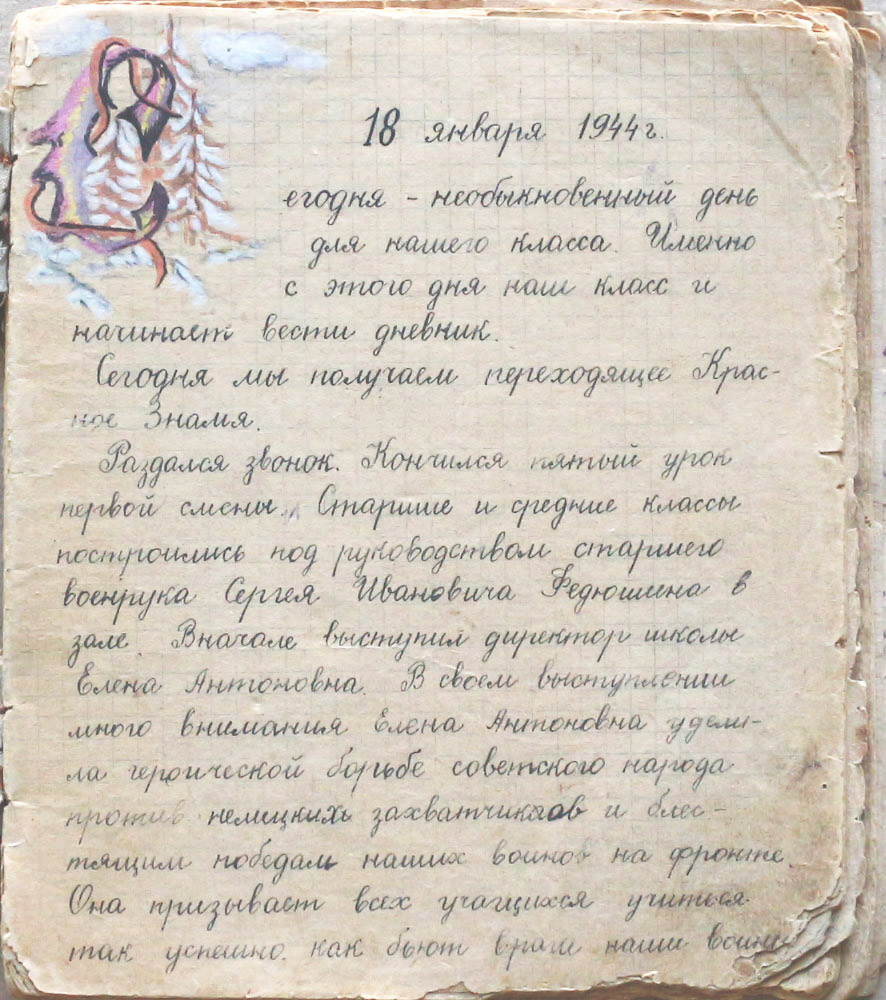 18 января 1944 г.
Сегодня - необыкновенный день
для нашего класса. Именно
с этого дня наш класс и
начинает вести дневник.
Сегодня мы получаем переходящее Крас-
ное Знамя.
Раздался звонок. Кончился пятый урок
первой смены. Старшие и средние классы
построились под руководством старшего
военрука Сергея Ивановича Федюшина в
зале. Вначале выступил директор школы
Елена Антоновна. В своем выступлении
много внимания Елена Антоновна удели-
ла героической борьбе советского народа
против немецких захватчиков и блес-
тящим победам наших воинов на фронте.
Она призывает всех учащихся учиться
так успешно, как бьют врага наши воины